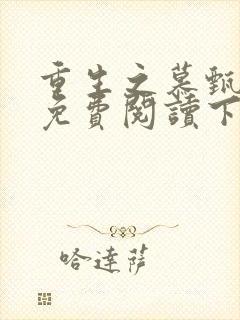 重生之慕甄
免費閱讀下
哈達薩